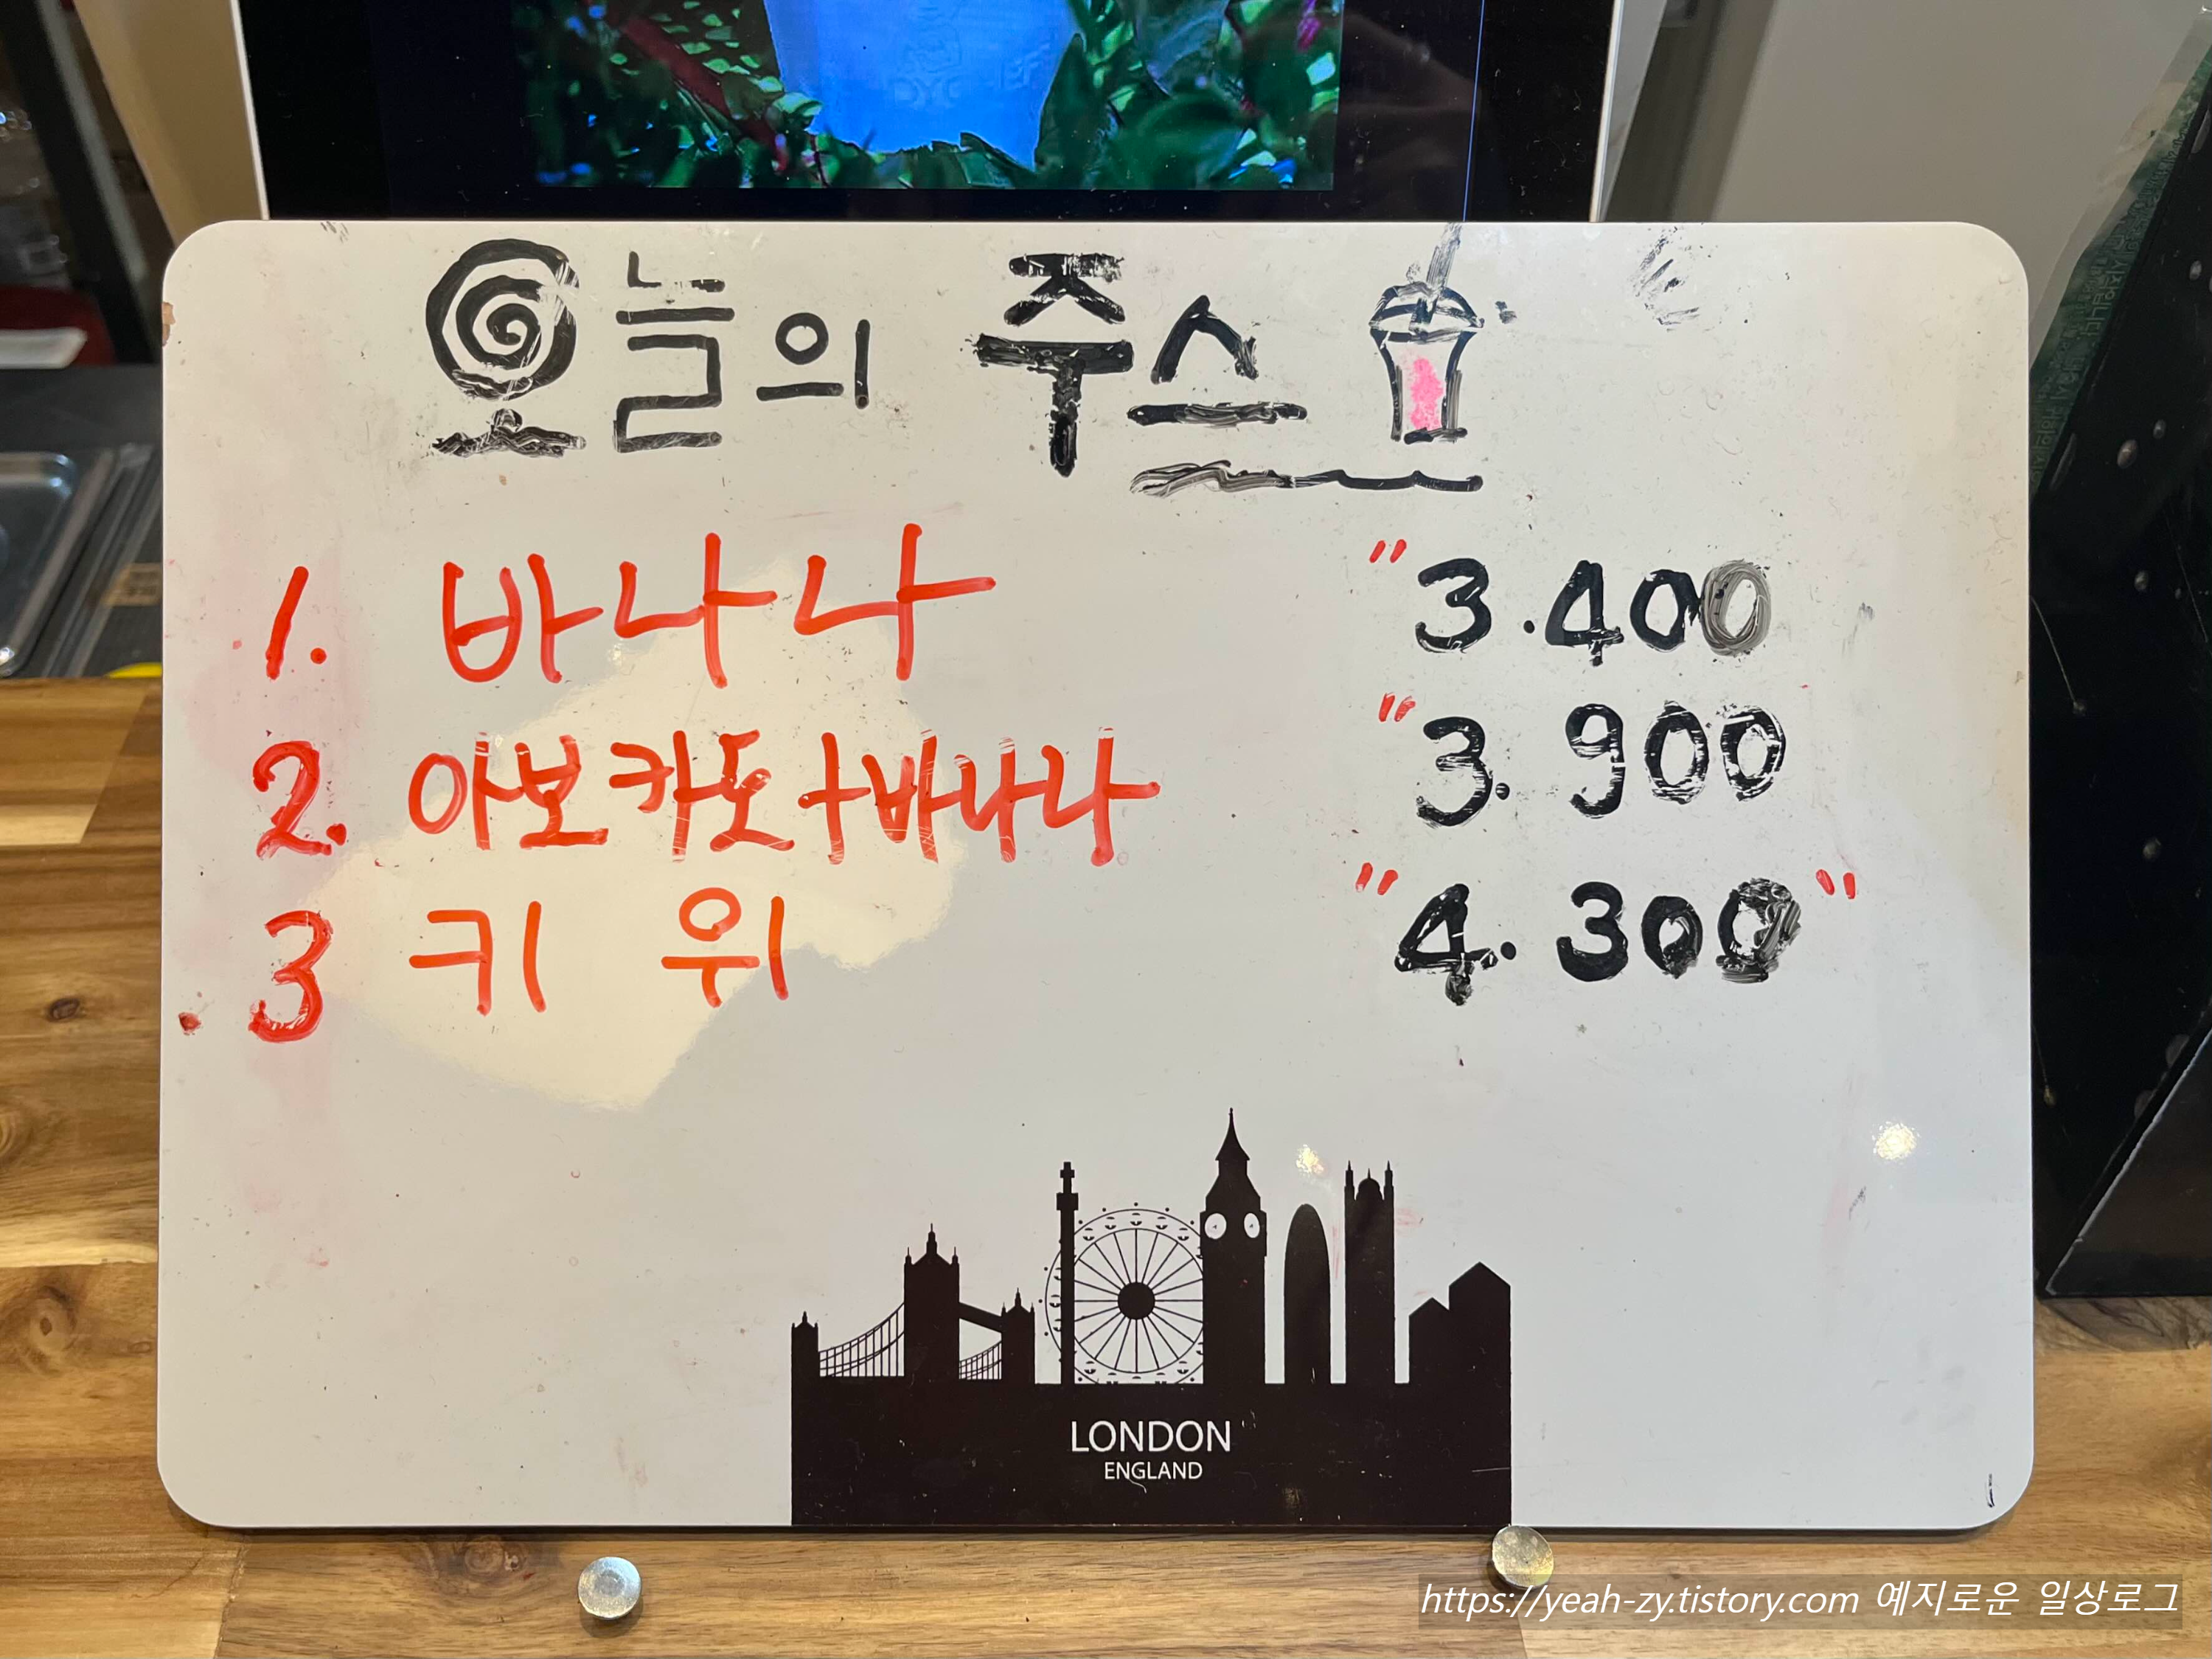 오늘의 주스
1. 바나나 "3.400
2. 아보카도+바나나 "3.900
3 키위 "4.300"
LONDON
ENGLAND
https://yeah-zy.tistory.com 예지로운 일상로그